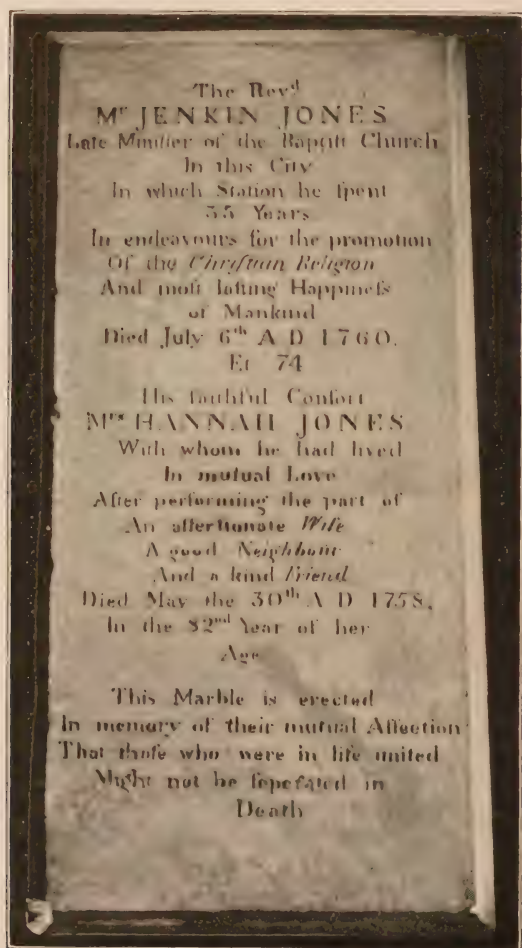 The Revd
Mr JENKIN JONES
Late Miniſter of the Baptiſt Church
In this City
In which Station he ſpent
35 Years
In endeavours for the promotion
Of the Chriſtian Religion
And moſt laſting Happineſs
of Mankind
Died July 6th A D 1760.
Et 74
His faithful Conſort
Mrs HANNAH JONES
With whom he had lived
In mutual Love
After performing the part of
An affectionate Wife
A good Neighbour
And a kind Friend
Died May the 30th A D 1758,
In the 82nd Year of her
Age
This Marble is erected
In memory of their mutual Affection
That thoſe who were in life united
Might not be ſeperated in
Death